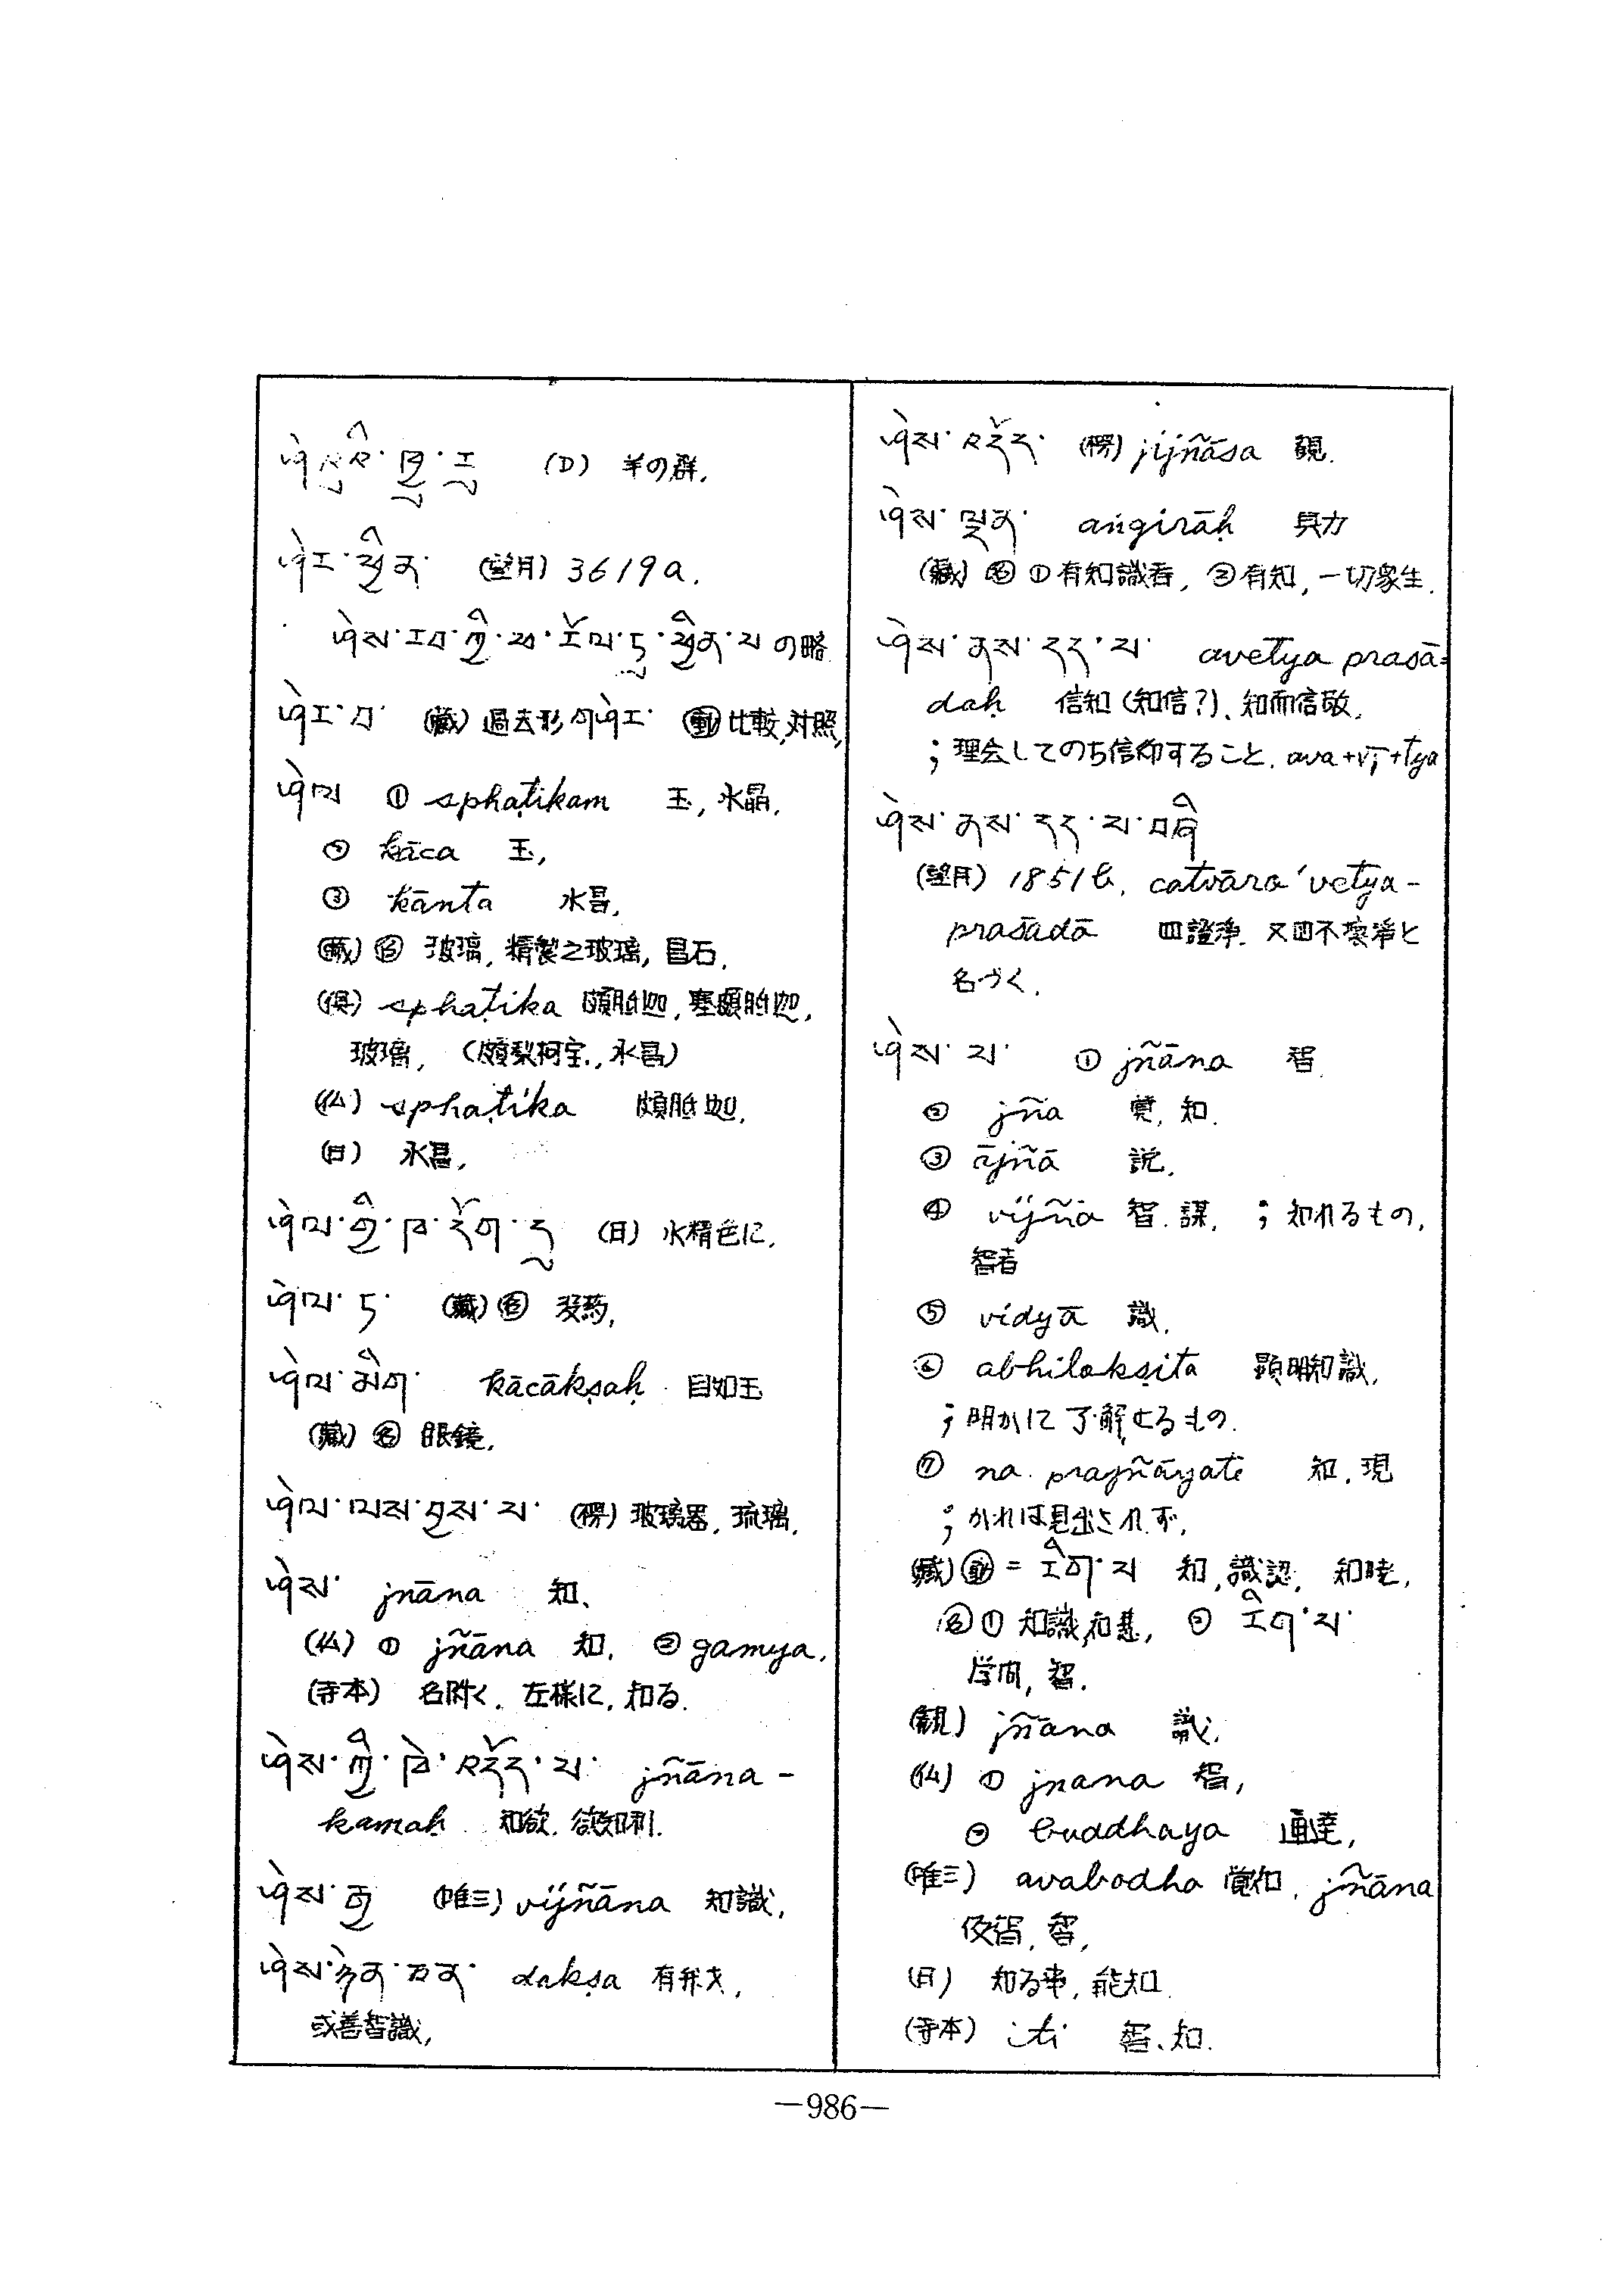 (D) 羊の群.
ཤེར་ཕྱིན་ (望月) 3619a.
ཤེས་རབ་ཀྱི་ཕ་རོལ་ཏུ་ཕྱིན་པ の略.
(藏) 過去形 གཤེར་ 動 比較, 対照,
ཤེལ ① sphaṭikam 玉, 水晶.
② kāca 玉,
③ kānta 水晶,
(藏) 名 玻璃, 精製之玻璃, 晶石,
(倶) sphaṭika 頗胝迦, 塞頗胝迦,
玻璃, (頗梨柯宝, 水晶)
(仏) sphaṭika 頗胝迦,
(日) 水晶,
ཤེལ་གྱི་ཁ་དོག་དུ (日) 水精色に,
ཤེལ་ཏ་ (藏) 名 没薬,
ཤེལ་མིག་ kācākṣaḥ 目如玉
(藏) 名 眼鏡,
ཤེལ་ལས་བྱས་པ་ (楞) 玻璃器, 琉璃,
ཤེས་ jnāna 知、
(仏) ① jñāna 知, ② gamya,
(寺本) 名附く, 左様に, 知る.
ཤེས་ཀྱི་ཁེ་འདོད་པ་ jñāna-
kamaḥ 知欲. 欲知利.
ཤེས་བྱ (唯三) vijñāna 知識,
ཤེས་ཉེན་ཅན་ dakṣa 有弁才,
或善智識,
ཤེས་འདོད་ (楞) jijñāsa 観.
ཤེས་ལྡན་ aṅgirāḥ 具力
(藏) 名 ① 有知識者, ② 有知, 一切衆生.
ཤེས་ནས་དད་པ་ avetya prasā=
daḥ 信知 (知信?)、知而信敬,
; 理会してのち信仰すること. ava+vi+tya
ཤེས་ནས་དད་པ་བཞི
(望月) 1851b, catvāra'vetya-
prasādā 四證淨. 又四不壊淨と
名づく.
ཤེས་པ་ ① jñāna 智.
② jña 覚, 知.
③ ājñā 説,
④ vijña 智. 謀, ; 知れるもの,
智者
⑤ vidyā 識,
⑥ abhilakṣita 顕明知識,
; 明かに了解せるもの.
⑦ na prajñāyate 知, 現
; かれは見出されず,
(藏) 動 = རིག་པ 知, 識認, 知暁,
名 ① 知識, 知慧, ② རིག་པ་
学问, 智.
(観) jñana 識,
(仏) ① jnana 智,
② buddhaya 通達,
(唯三) avabodha 覚知, jñāna
及智, 智,
(月) 知る事, 能知.
(寺本) iti 智、知.
—986—